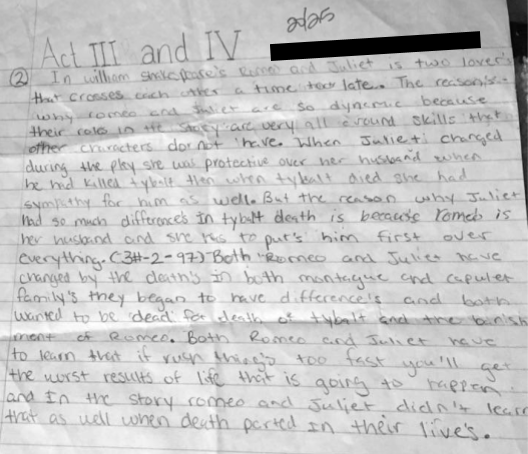 2/25
Act III and IV
② In william shakespeare's Romeo and Juliet is two lover's
that crosses each other a time too late. The reason's
why romeo and Juliet are so dynamic because
their roles in the story are very all around skills that
other characters do not have. When Juliet changed
during the play she was protective over her husband when
he had killed tybalt then when tybalt died she had
sympathy for him as well. But the reason why Juliet
had so much differences in tybalt death is because romeo is
her husband and she has to put's him first over
everything. (3#-2-97) Both Romeo and Juliet have
changed by the death's in both montague and capulet
family's they began to have difference's and both
wanted to be dead for death of tybalt and the banish
ment of Romeo. Both Romeo and Juliet have
to learn that if rush things too fast you'll get
the worst results of life that is going to happen
and In the story romeo and Juliet didn't learn
that as well when death parted In their live's.